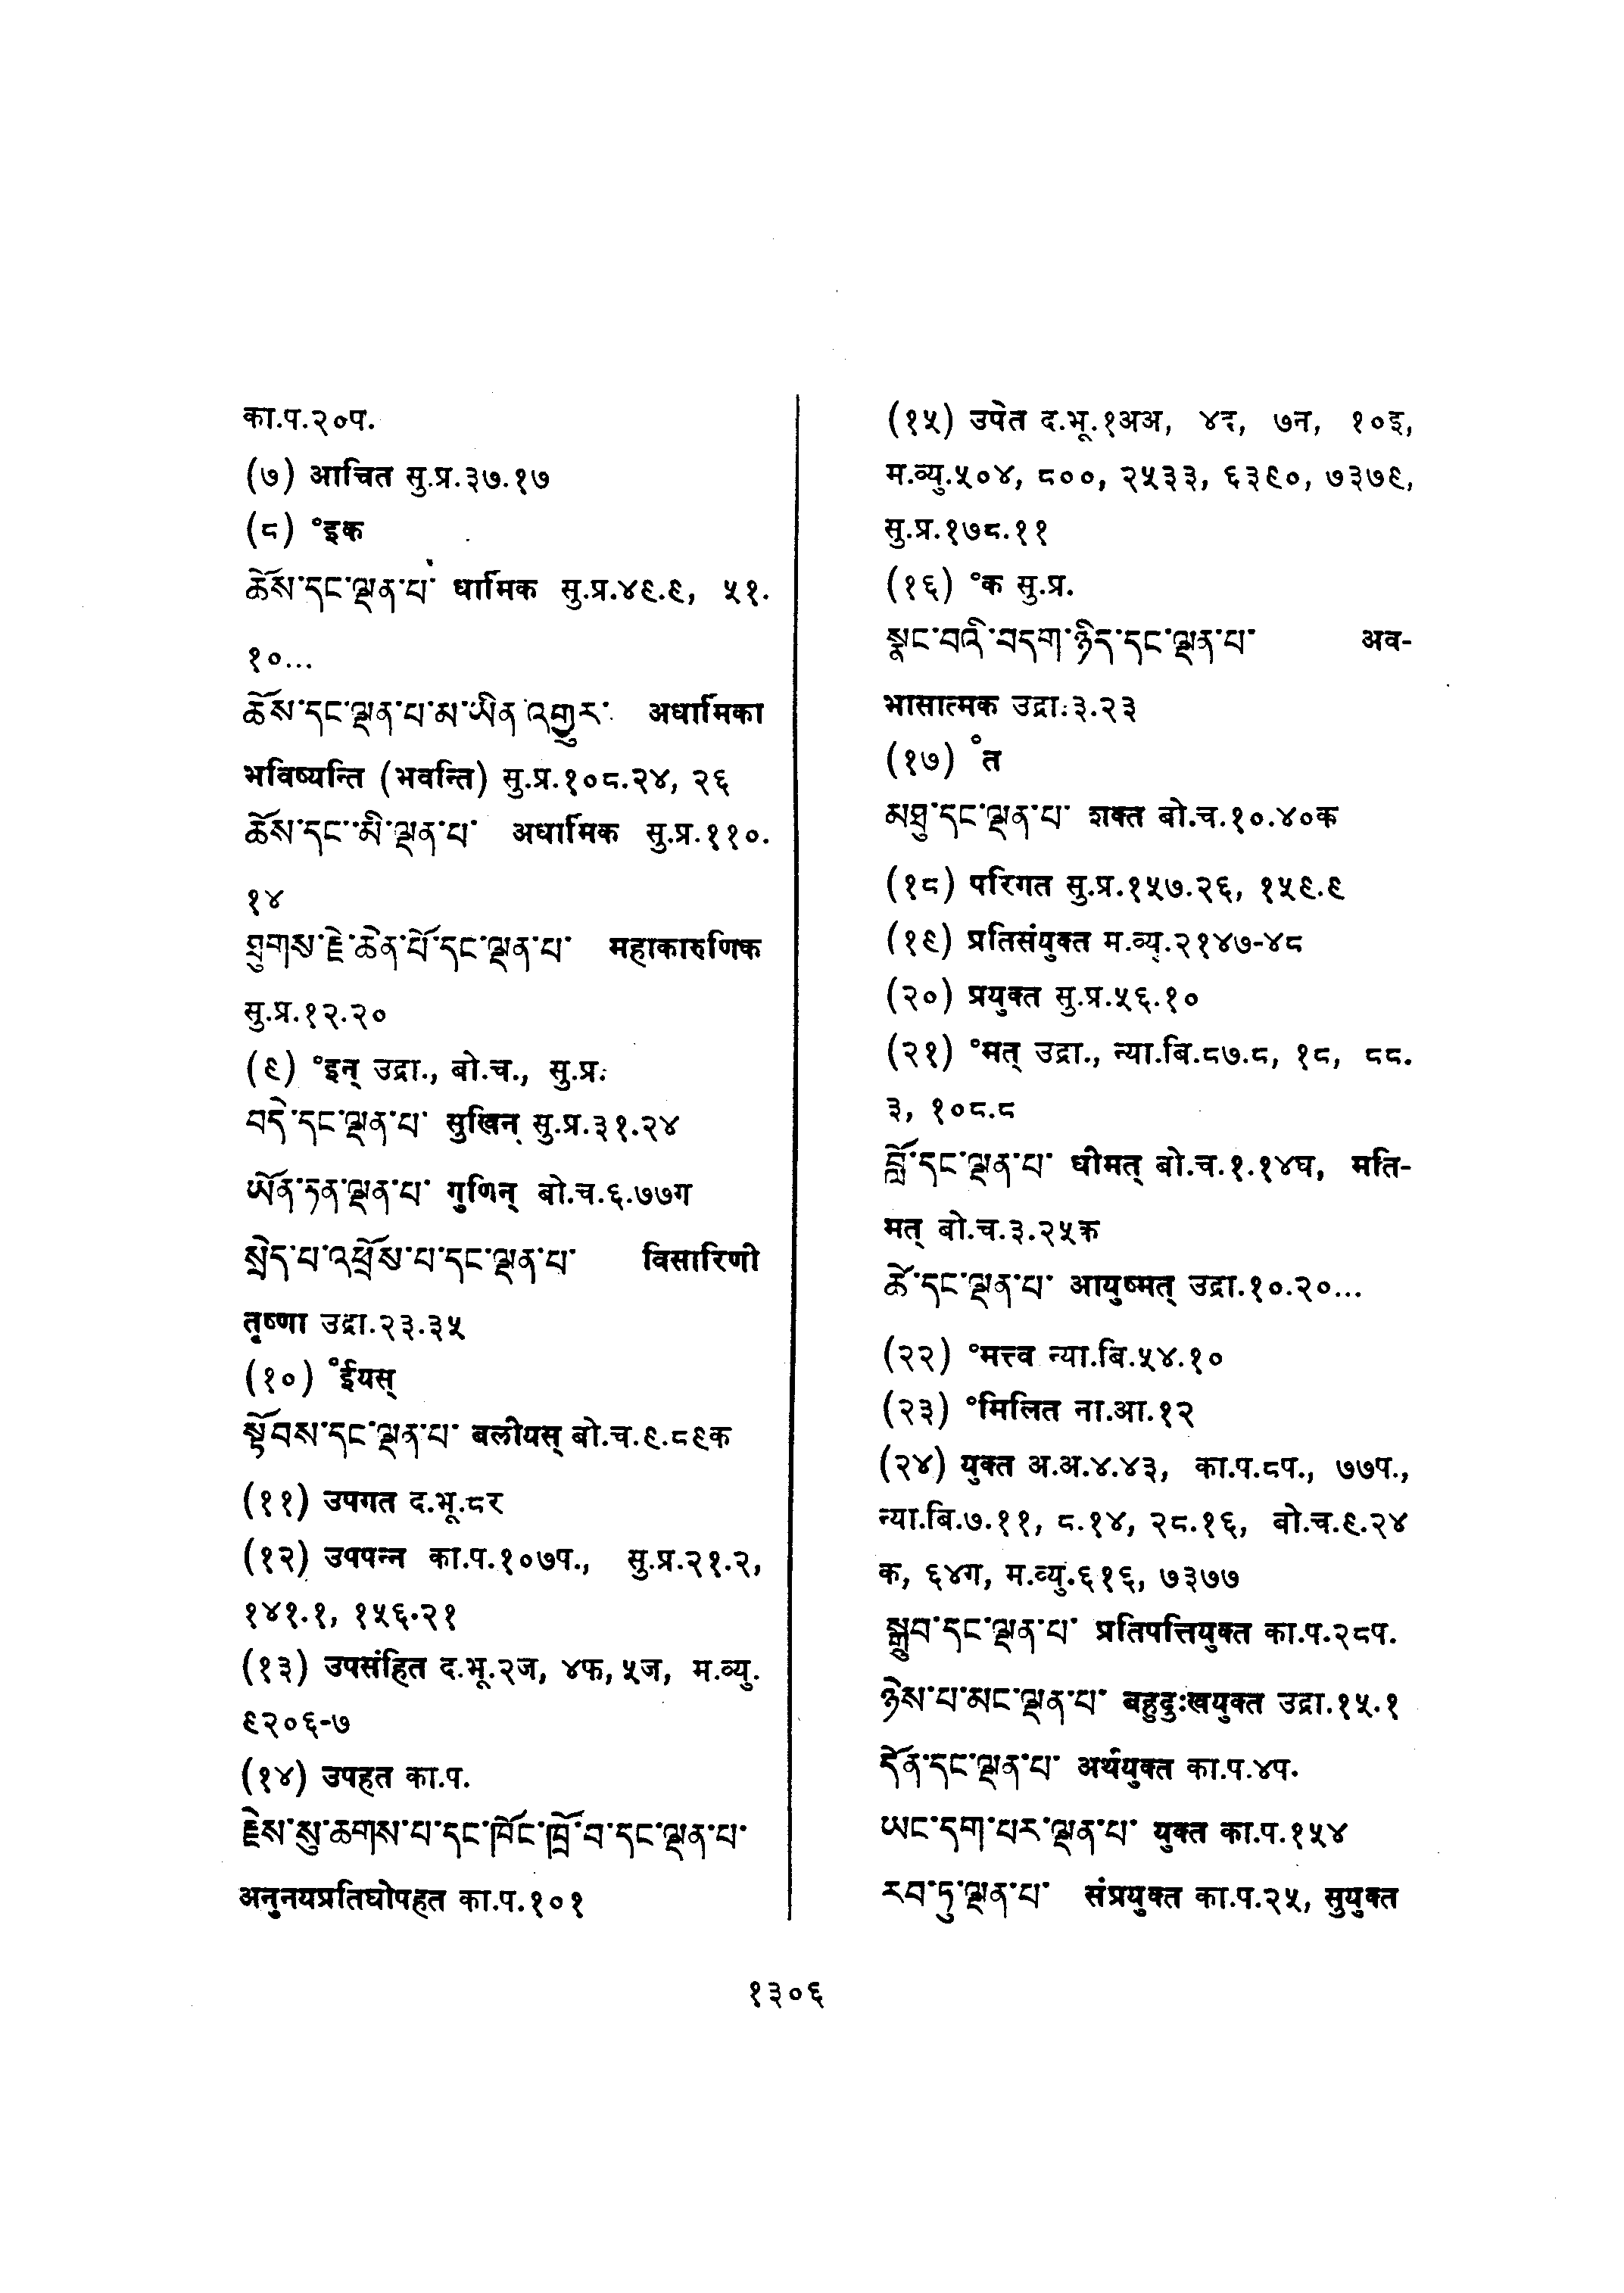 का.प.२०प.
(७) आचित सु.प्र.३७.१७
(८) °इक
ཆོས་དང་ལྡན་པ་ धार्मिक सु.प्र.४९.९, ५१.
१०...
ཆོས་དང་ལྡན་པ་མ་ཡིན་འགྱུར་ अधार्मिका
भविष्यन्ति (भवन्ति) सु.प्र.१०८.२४, २६
ཆོས་དང་མི་ལྡན་པ་ अधार्मिक सु.प्र.११०.
१४
ཐུགས་རྗེ་ཆེན་པོ་དང་ལྡན་པ་ महाकारुणिक
सु.प्र.१२.२०
(९) °इन् उद्रा., बो.च., सु.प्र.
བདེ་དང་ལྡན་པ་ सुखिन् सु.प्र.३१.२४
ཡོན་ཏན་ལྡན་པ་ गुणिन् बो.च.६.७७ग
སྲེད་པ་འཕྲོས་པ་དང་ལྡན་པ་ विसारिणी
तृष्णा उद्रा.२३.३५
(१०) °ईयस्
སྟོབས་དང་ལྡན་པ་ बलीयस् बो.च.९.८९क
(११) उपगत द.भू.८र
(१२) उपपन्न का.प.१०७प., सु.प्र.२१.२,
१४१.१, १५६.२१
(१३) उपसंहित द.भू.२ज, ४फ, ५ज, म.व्यु.
९२०६-७
(१४) उपहत का.प.
རྗེས་སུ་ཆགས་པ་དང་ཁོང་ཁྲོ་བ་དང་ལྡན་པ་
अनुनयप्रतिघोपहत का.प.१०१
(१५) उपेत द.भू.१अअ, ४द, ७न, १०इ,
म.व्यु.५०४, ८००, २५३३, ६३९०, ७३७९,
सु.प्र.१७८.११
(१६) °क सु.प्र.
སྣང་བའི་བདག་ཉིད་དང་ལྡན་པ་ अव-
भासात्मक उद्रा.३.२३
(१७) °त
མཐུ་དང་ལྡན་པ་ शक्त बो.च.१०.४०क
(१८) परिगत सु.प्र.१५७.२६, १५९.९
(१९) प्रतिसंयुक्त म.व्यु.२१४७-४८
(२०) प्रयुक्त सु.प्र.५६.१०
(२१) °मत् उद्रा., न्या.बि.८७.८, १८, ८८.
३, १०८.८
བློ་དང་ལྡན་པ་ धीमत् बो.च.१.१४घ, मति-
मत् बो.च.३.२५क
ཚེ་དང་ལྡན་པ་ आयुष्मत् उद्रा.१०.२०...
(२२) °मत्त्व न्या.बि.५४.१०
(२३) °मिलित ना.आ.१२
(२४) युक्त अ.अ.४.४३, का.प.८प., ७७प.,
न्या.बि.७.११, ८.१४, २८.१६, बो.च.९.२४
क, ६४ग, म.व्यु.६१६, ७३७७
སྒྲུབ་དང་ལྡན་པ་ प्रतिपत्तियुक्त का.प.२८प.
ཉེས་པ་མང་ལྡན་པ་ बहुदुःखयुक्त उद्रा.१५.१
དོན་དང་ལྡན་པ་ अर्थयुक्त का.प.४प.
ཡང་དག་པར་ལྡན་པ་ युक्त का.प.१५४
རབ་ཏུ་ལྡན་པ་ संप्रयुक्त का.प.२५, सुयुक्त
१३०६